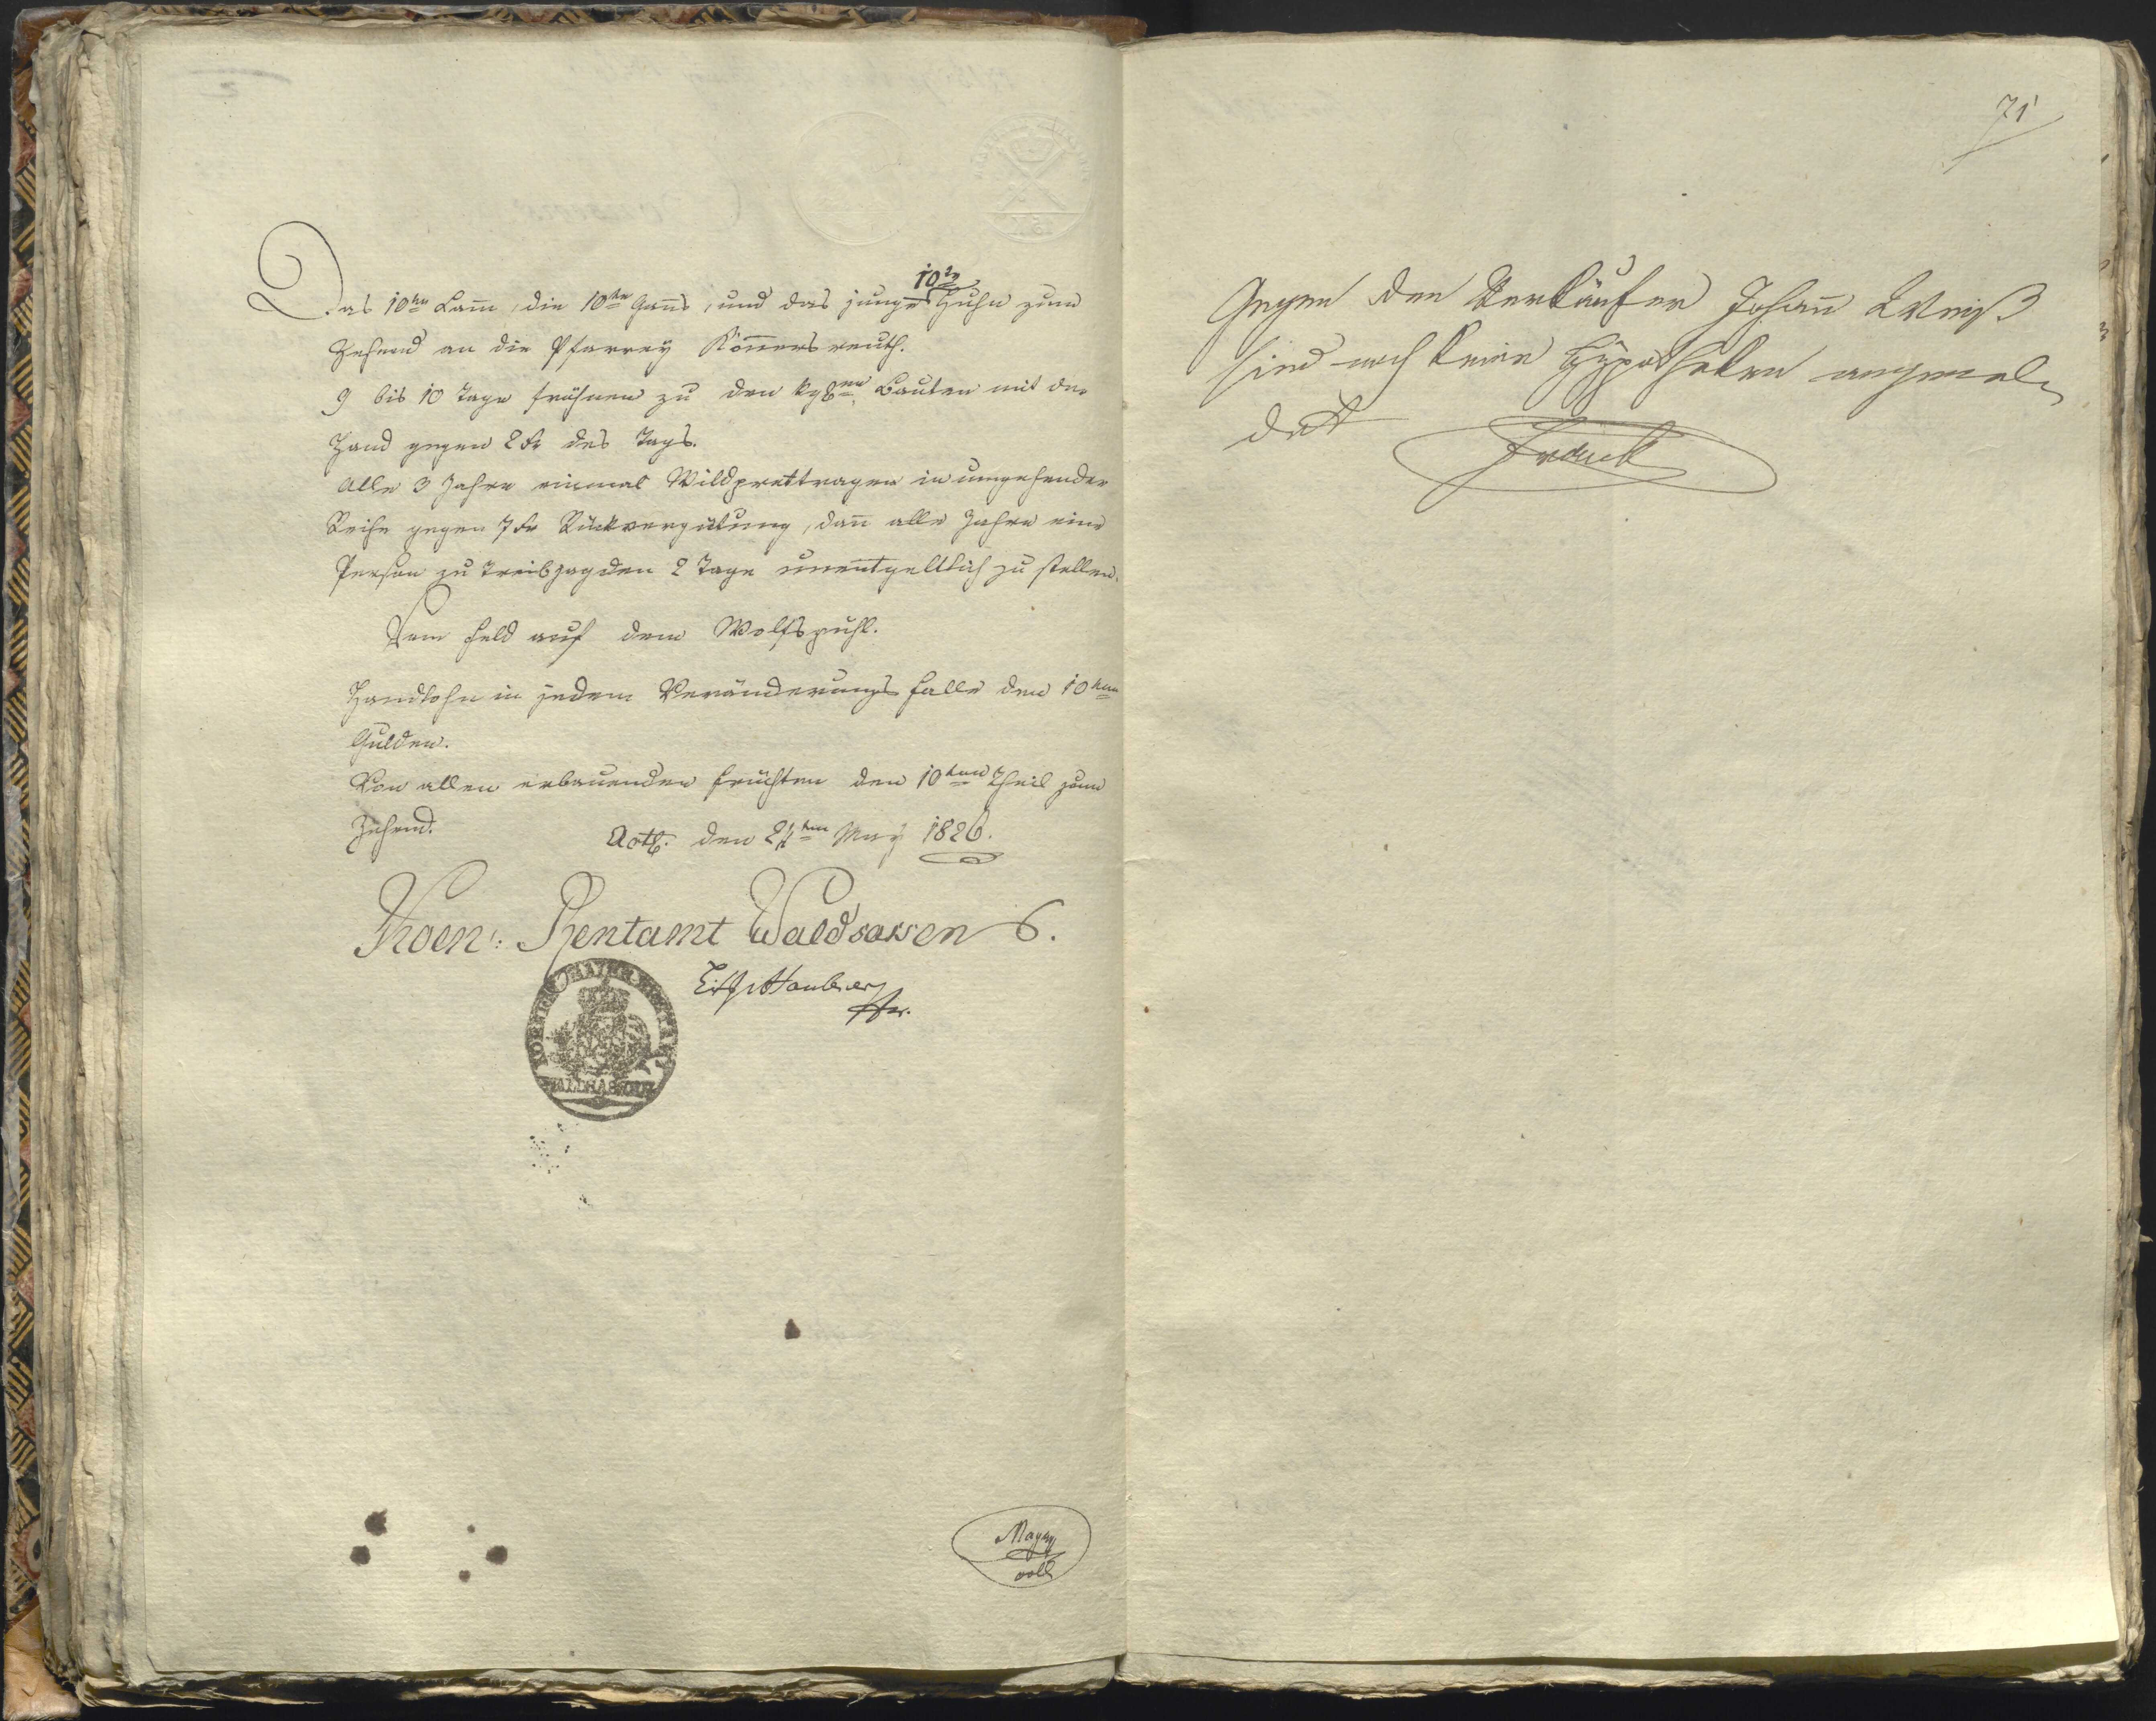 Das 10te Lam̄, die 10te Gans, und das junge 10te Huhn zum
Zehend an die Pfarrey Kon̄ersreuth.
9 bis 10 Tage fröhnen zu den kgl. Bauten mit der
Hand gegen 2 kr des Tags.
Alle 3 Jahre einmal Wildprettragen in umgehender
Reihe gegen 7 kr Rückvergütung, dan̄ alle Jahre eine
Person zu Treibjagden 2 Tage unentgeltlich zu stellen.
Vom Feld auf dem Wolfspuhl.
Handlohn in jedem Veränderungs falle den 10ten
Gulden.
Von allen erbauenden Früchten den 10ten Theil zum
Zehend.
den 24ten May 1826.
Koen: Rentamt Waldsassen
WALDSASSEN
Mayer
71
Gegen den Verkäufer Johan̄ Weiß
sind noch keine Hypotheken angemel-
det